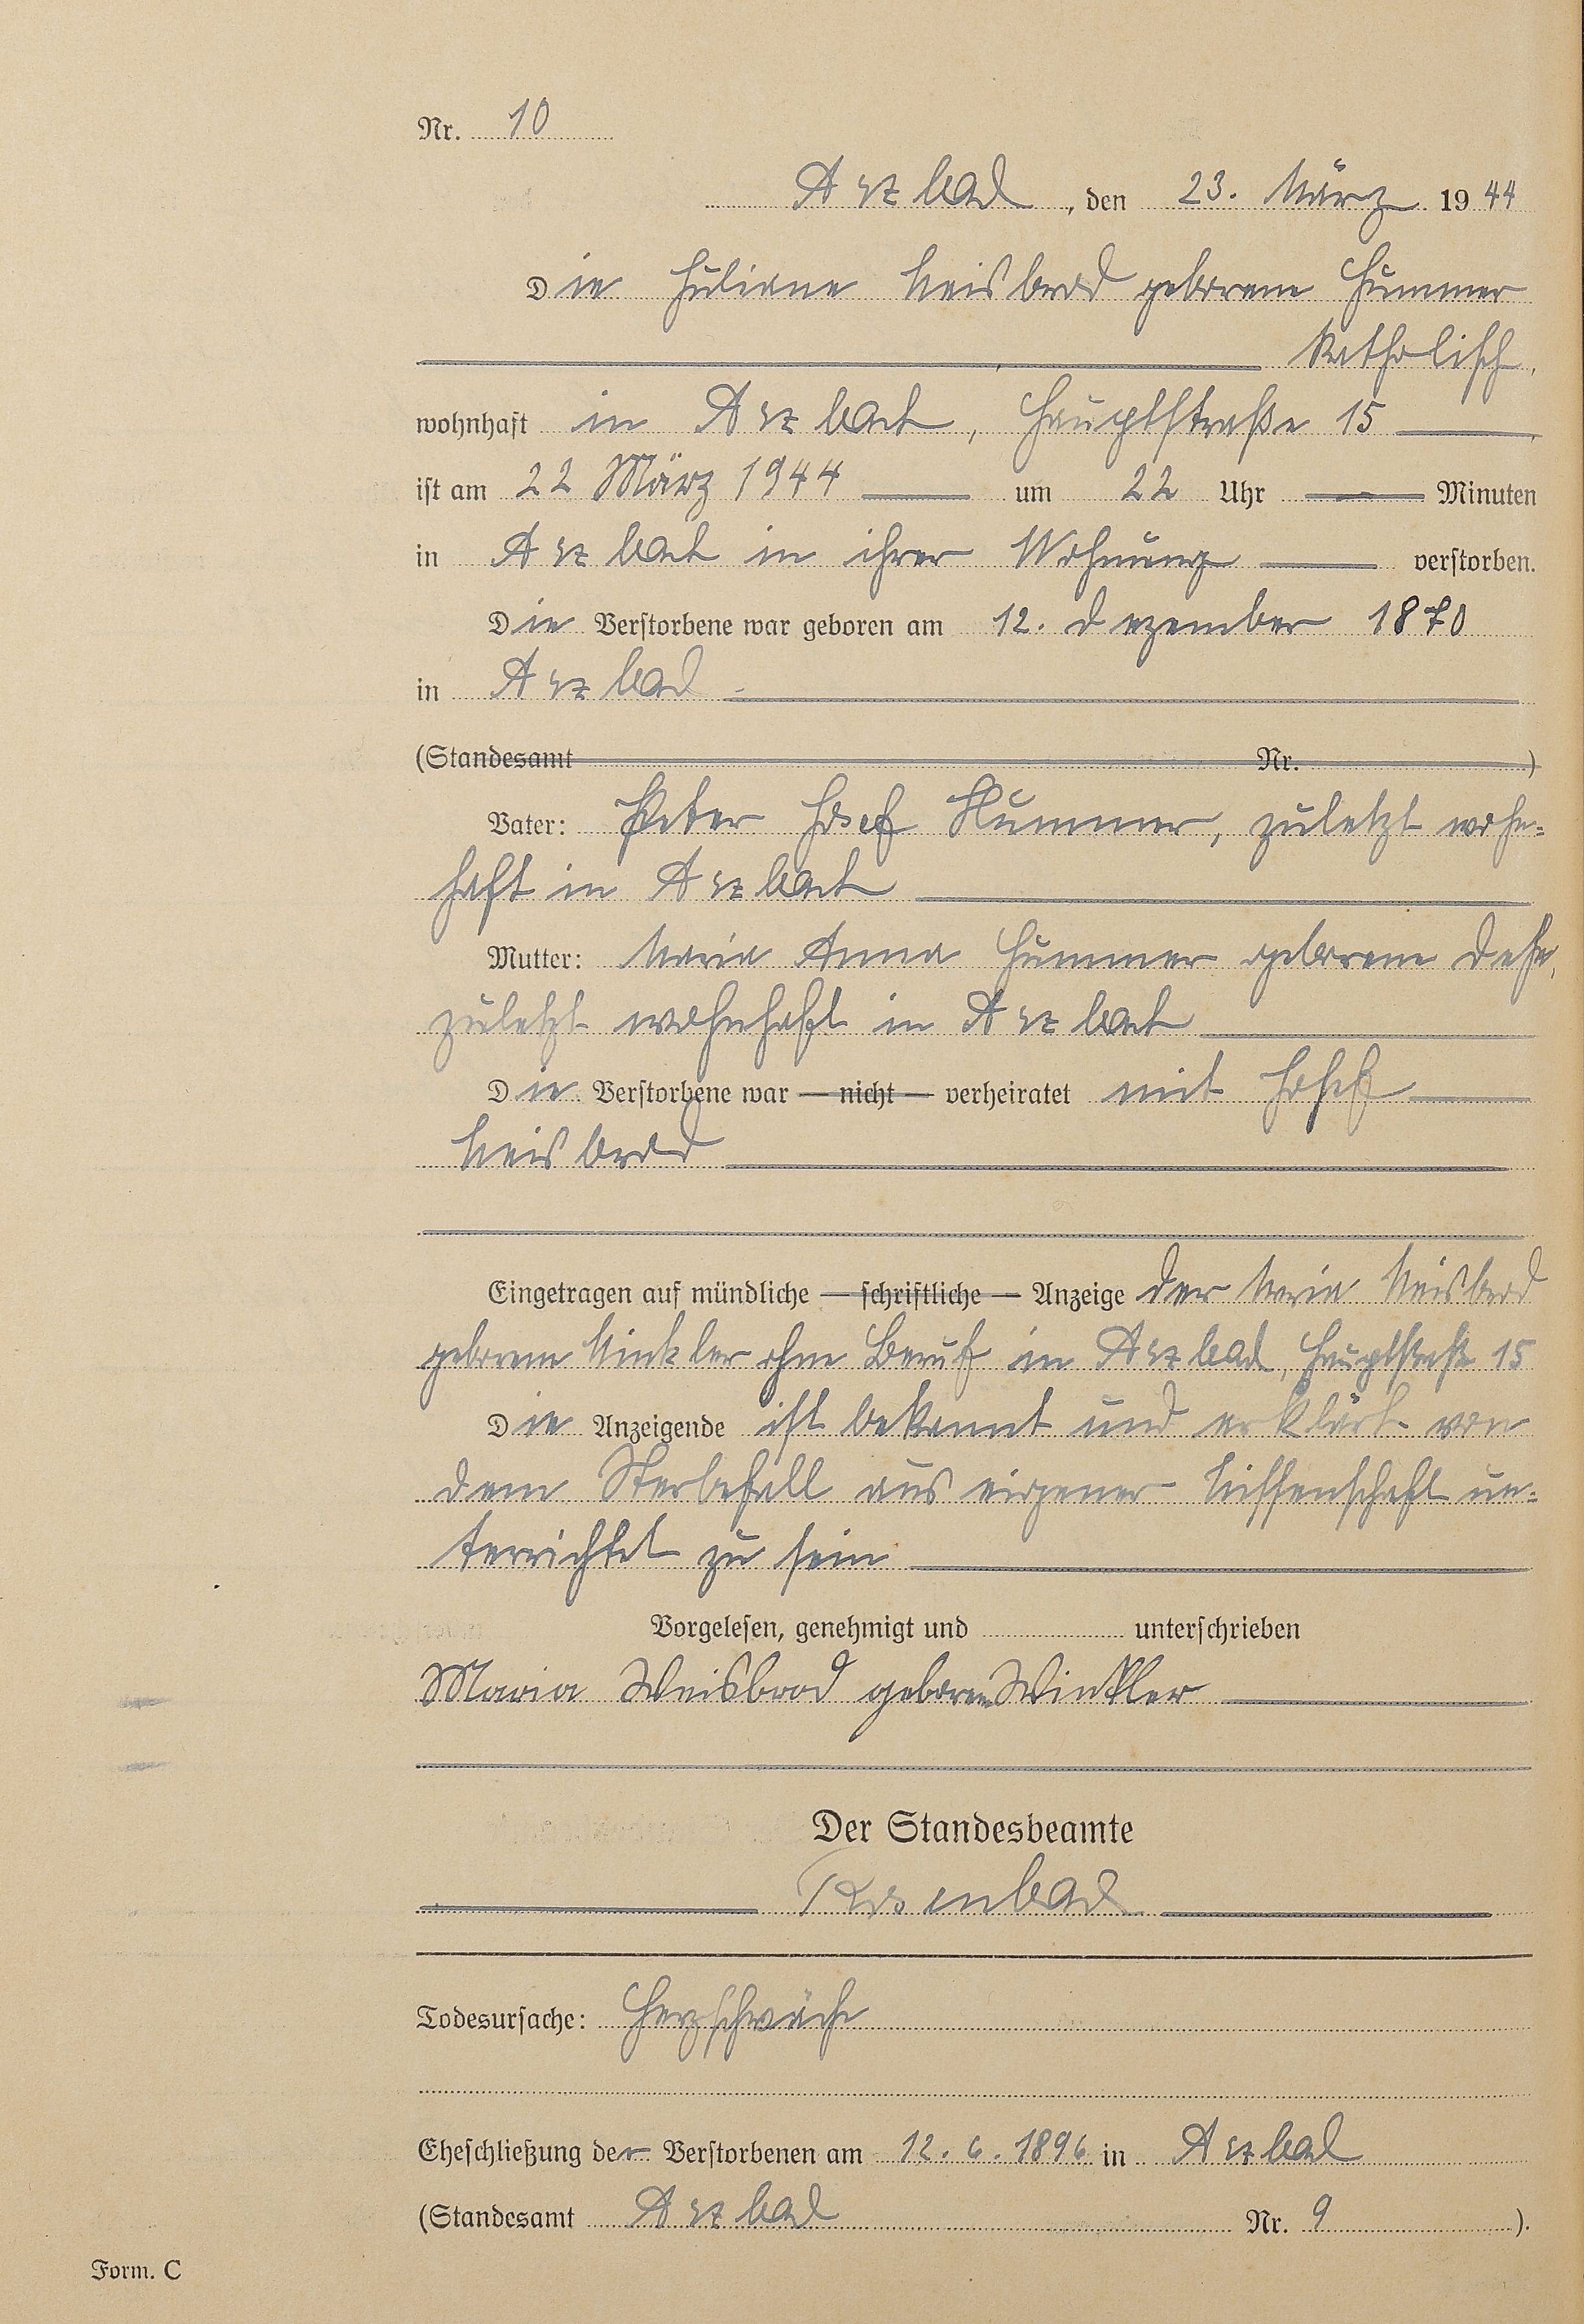 Nr. 10
Arzbach, den 23. März 1944
Die Juliane Weisbrod geborene Hummer
katholisch,
wohnhaft in Arzbach, Hauptstraße 15
ist am 22 März 1944 um 22 Uhr Minuten
in Arzbach in ihrer Wohnung verstorben.
Die Verstorbene war geboren am 12. Dezember 1870
in Arzbach
(Standesamt Nr. )
Vater: Peter Josef Hummer, zuletzt wohn-
haft in Arzbach
Mutter: Maria Anna Hummer geborene Dehe,
zuletzt wohnhaft in Arzbach
Die Verstorbene war — nicht — verheiratet mit Josef
Weisbrod
Eingetragen auf mündliche — schriftliche — Anzeige der Maria Weisbrod
geborene Winkler ohne Beruf in Arzbach, Hauptstraße 15
Die Anzeigende ist bekannt und erklärt von
dem Sterbefall aus eigener Wissenschaft un-
terrichtet zu sein
Vorgelesen, genehmigt und unterschrieben
Maria Weisbrod geborene Winkler
Der Standesbeamte
Rosenbach
Todesursache: Herzschwäche
Eheschließung der Verstorbenen am 12.6.1896 in Arzbach
(Standesamt Arzbach Nr. 9 ).
Form. C